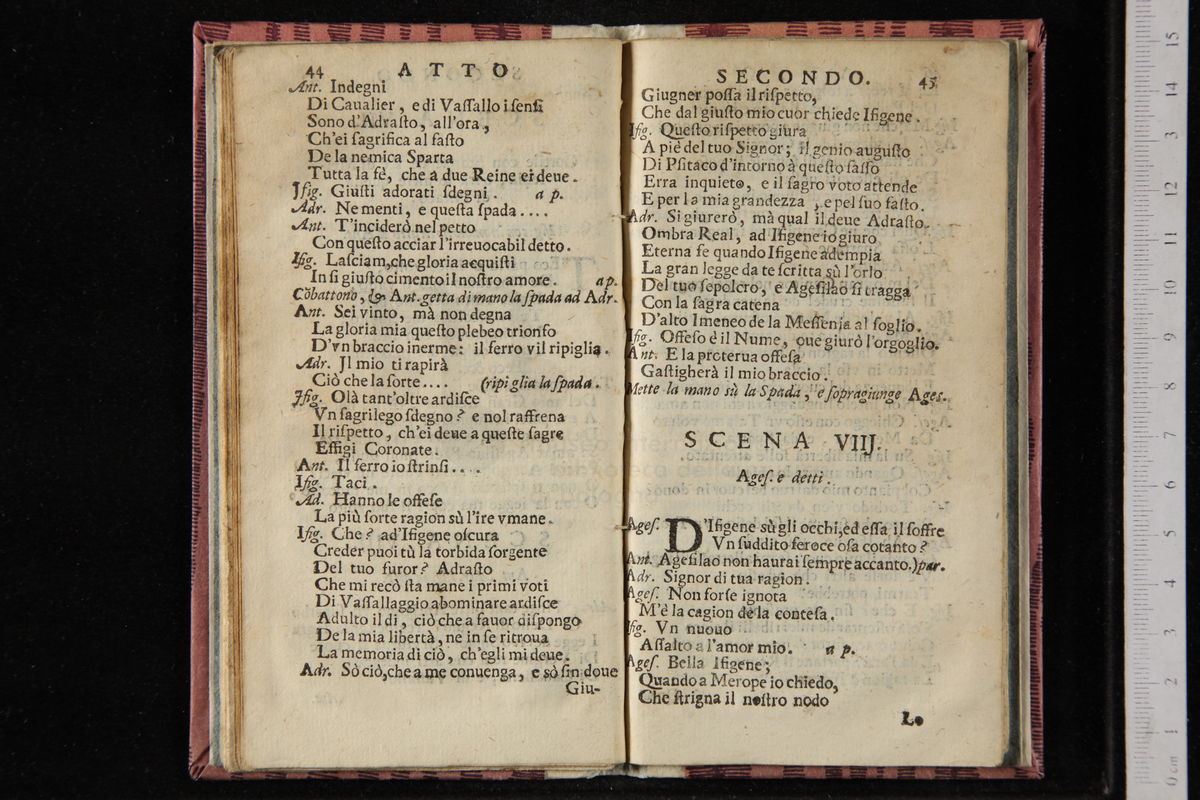 44 ATTO
Ant. Indegni
Di Caualier, e di Vaſſallo i ſenſi
Sono d'Adraſto, all'ora,
Ch'ei ſagrifica al faſto
De la nemica Sparta
Tutta la fè, che a due Reine ei deue.
Iſig. Giuſti adorati ſdegni. a p.
Adr. Ne menti, e queſta ſpada....
Ant. T'inciderò nel petto
Con queſto acciar l'irreuocabil detto.
Ifig. Laſciam, che gloria acquiſti
In ſi giuſto cimento il noſtro amore. a p.
Cõbattono, & Ant. getta di mano la ſpada ad Adr.
Ant. Sei vinto, mà non degna
La gloria mia queſto plebeo trionfo
D'vn braccio inerme: il ferro vil ripiglia.
Adr. Jl mio ti rapirà
Ciò che la ſorte.... (ripiglia la ſpada.
Ifig. Olà tant'oltre ardiſce
Vn ſagrilego ſdegno? e nol raffrena
Il riſpetto, ch'ei deue a queſte ſagre
Effigi Coronate.
Ant. Il ferro io ſtrinſi....
Ifig. Taci.
Ad. Hanno le offeſe
La più forte ragion sù l'ire vmane.
Ifig. Che? ad'Ifigene oſcura
Creder puoi tù la torbida ſorgente
Del tuo furor? Adraſto
Che mi recò ſta mane i primi voti
Di Vaſſallaggio abominare ardiſce
Adulto il dì, ciò che a fauor diſpongo
De la mia libertà, ne in ſe ritroua
La memoria di ciò, ch'egli mi deue.
Adr. Sò ciò, che a me conuenga, e sò fin doue
Giu-
SECONDO. 45
Giugner poſſa il riſpetto,
Che dal giuſto mio cuor chiede Ifigene.
Ifig. Queſto riſpetto giura
A piè del tuo Signor; il genio auguſto
Di Pſitaco d'intorno à queſto ſaſſo
Erra inquieto, e il ſagro voto attende
E per la mia grandezza, e pel ſuo faſto.
Adr. Si giurerò, mà qual il deue Adraſto.
Ombra Real, ad Ifigene io giuro
Eterna fe quando Ifigene adempia
La gran legge da te ſcritta sù l'orlo
Del tuo ſepolcro, e Ageſilao ſi tragga
Con la ſagra catena
D'alto Imeneo de la Meſſenia al ſoglio.
Ifig. Offeſo è il Nume, oue giurò l'orgoglio.
Ant. E la proterua offeſa
Gaſtigherà il mio braccio.
Mette la mano sù la Spada, e ſopragiunge Ageſ.
SCENA VIIJ.
Ageſ. e detti.
Ageſ. D'Ifigene sù gli occhi, ed eſſa il ſoffre
Vn ſuddito feroce oſa cotanto?
Ant. Ageſilao non haurai ſempre accanto.) par.
Adr. Signor di tua ragion.
Ageſ. Non forſe ignota
M'è la cagion de la conteſa.
Ifig. Vn nuouo
Aſſalto a l'amor mio. a p.
Ageſ. Bella Ifigene;
Quando a Merope io chiedo,
Che ſtrigna il noſtro nodo
Lo
15
14
13
12
11
10
9
8
7
6
5
4
3
2
1
0 cm